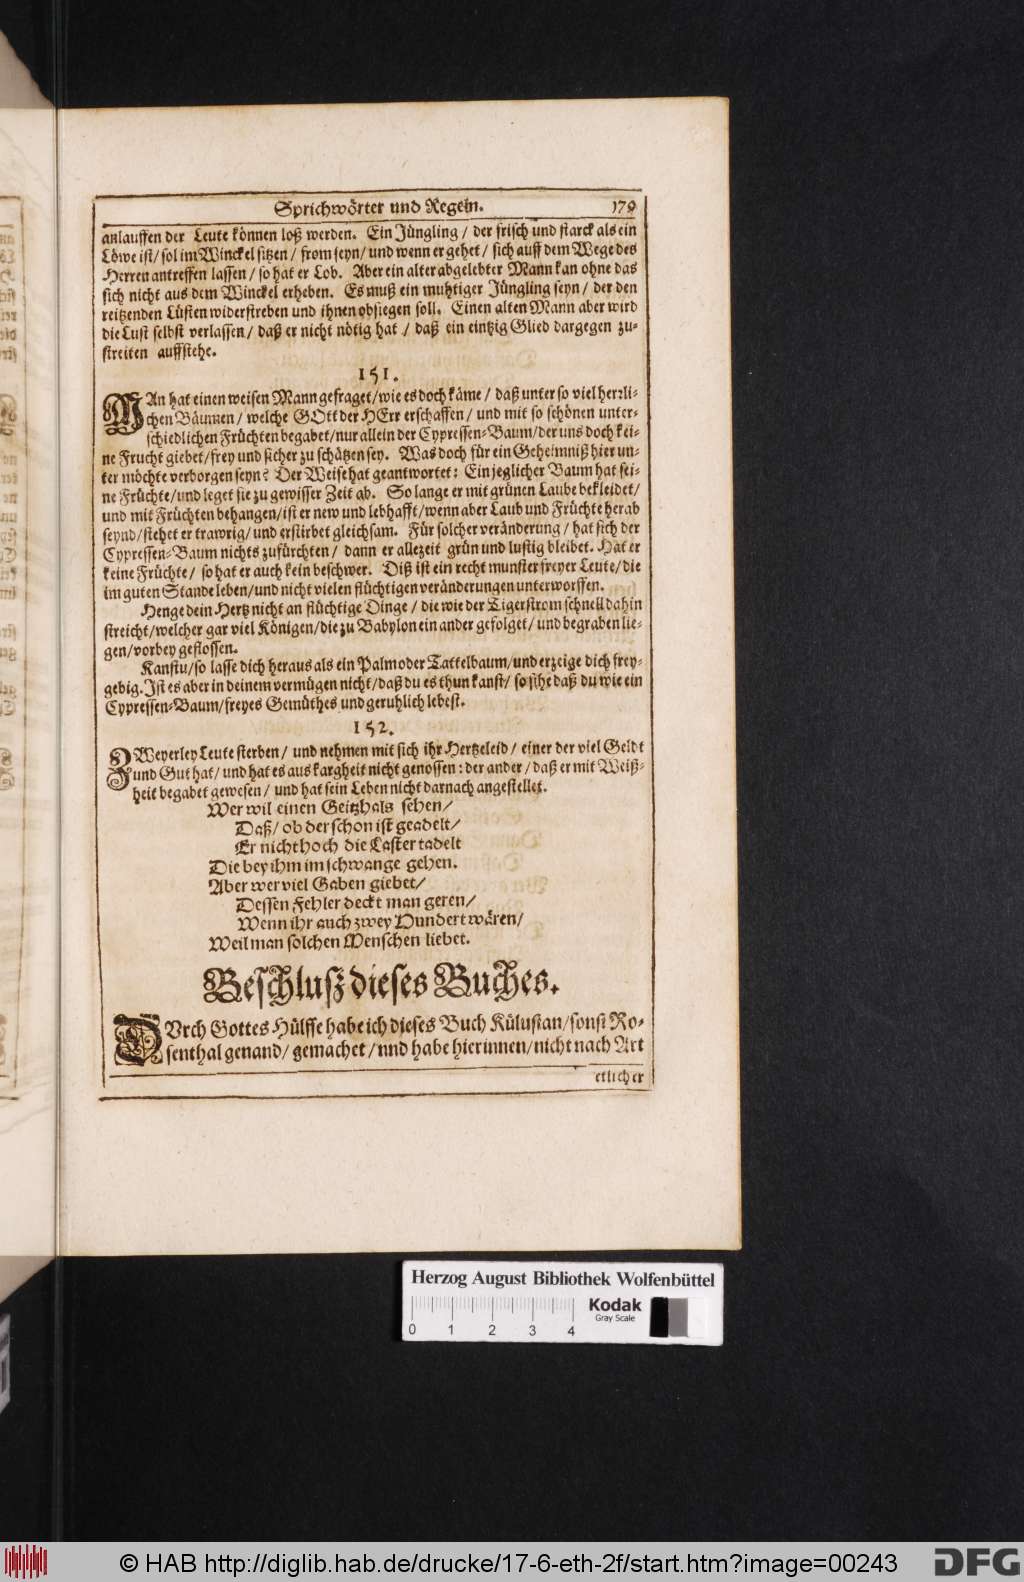 Sprichwörter und Regeln. 179
anlauffen der Leute können loß werden. Ein Jüngling / der frisch und starck als ein
Löwe ist / sol im Winckel sitzen / from seyn / und wenn er gehet / sich auff dem Wege des
Herren antreffen lassen / so hat er Lob. Aber ein alter abgelebter Mann kan ohne das
sich nicht aus dem Winckel erheben. Es muß ein muhtiger Jüngling seyn / der den
reitzenden Lüsten widerstreben und ihnen obsiegen soll. Einen alten Mann aber wird
die Lust selbst verlassen / daß er nicht nötig hat / daß ein eintzig Glied dargegen zu-
streiten auffstehe.
151.
MAn hat einen weisen Mann gefraget / wie es doch käme / daß unter so viel herzli-
chen Bäumen / welche GOtt der HErr erschaffen / und mit so schönen unter-
schiedlichen Früchten begabet / nur allein der Cypressen-Baum / der uns doch kei-
ne Frucht giebet / frey und sicher zu schätzen sey. Was doch für ein Geheimniß hier un-
ter möchte verborgen seyn? Der Weise hat geantwortet: Ein jeglicher Baum hat sei-
ne Früchte / und leget sie zu gewisser Zeit ab. So lange er mit grünen Laube bekleidet /
und mit Früchten behangen / ist er new und lebhafft / wenn aber Laub und Früchte herab
seynd / stehet er trawrig / und erstirbet gleichsam. Für solcher veränderung / hat sich der
Cypressen-Baum nichts zufürchten / dann er allezeit grün und lustig bleibet. Hat er
keine Früchte / so hat er auch kein beschwer. Diß ist ein recht munster freyer Leute / die
im guten Stande leben / und nicht vielen flüchtigen veränderungen unterworffen.
Henge dein Hertz nicht an flüchtige Dinge / die wie der Tigerstrom schnell dahin
streicht / welcher gar viel Königen / die zu Babylon ein ander gefolget / und begraben lie-
gen / vorbey geflossen.
Kanstu / so lasse dich heraus als ein Palm oder Tattelbaum / und erzeige dich frey-
gebig. Ist es aber in deinem vermügen nicht / daß du es thun kanst / so sihe daß du wie ein
Cypressen-Baum / freyes Gemüthes und geruhlich lebest.
152.
ZWeyerley Leute sterben / und nehmen mit sich ihr Hertzeleid / einer der viel Geldt
und Gut hat / und hat es aus kargheit nicht genossen: der ander / daß er mit Weiß-
heit begabet gewesen / und hat sein Leben nicht darnach angestellet.
Wer wil einen Geitzhals sehen /
Daß / ob der schon ist geadelt /
Er nicht hoch die Laster tadelt
Die bey ihm im schwange gehen.
Aber wer viel Gaben giebet /
Dessen Fehler deckt man geren /
Wenn ihr auch zwey Hundert wären /
Weil man solchen Menschen liebet.
Beschluß dieses Buches.
DUrch Gottes Hülffe habe ich dieses Buch Külustan / sonst Ro-
senthal genand / gemachet / und habe hierinnen / nicht nach Art
etlicher
Herzog August Bibliothek Wolfenbüttel
Kodak
Gray Scale
0 1 2 3 4
© HAB http://diglib.hab.de/drucke/17-6-eth-2f/start.htm?image=00243
DFG